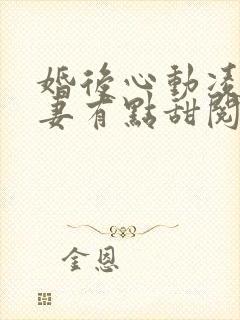 婚後心動凌
妻有點甜閱
金恩